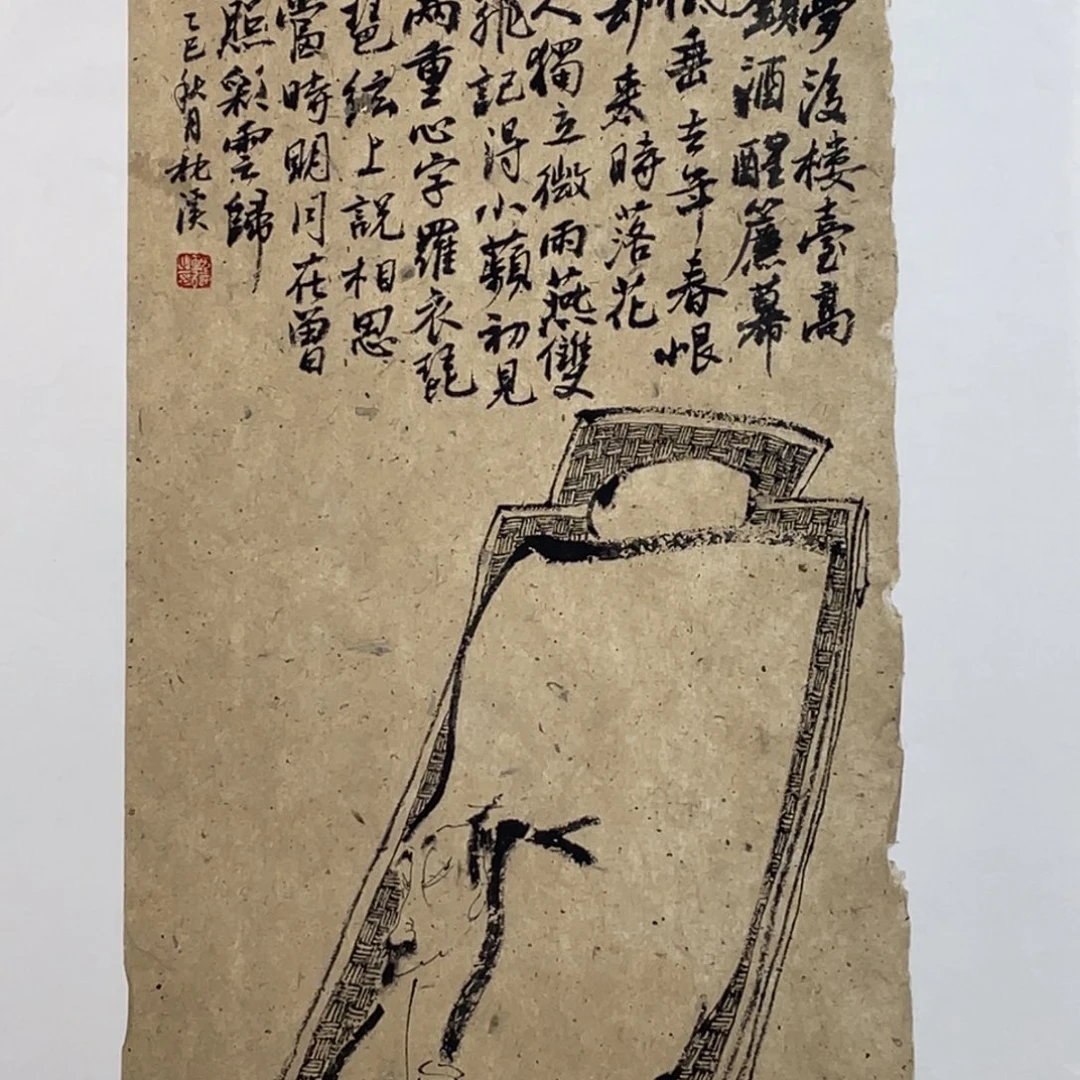 夢後楼臺高
鎖酒醒簾幕
低垂去年春恨
却來時落花
人獨立微雨燕雙
飛記得小蘋初見
兩重心字羅衣琵
琶絃上説相思
當時明月在曾
照彩雲歸
乙巳秋月枕溪